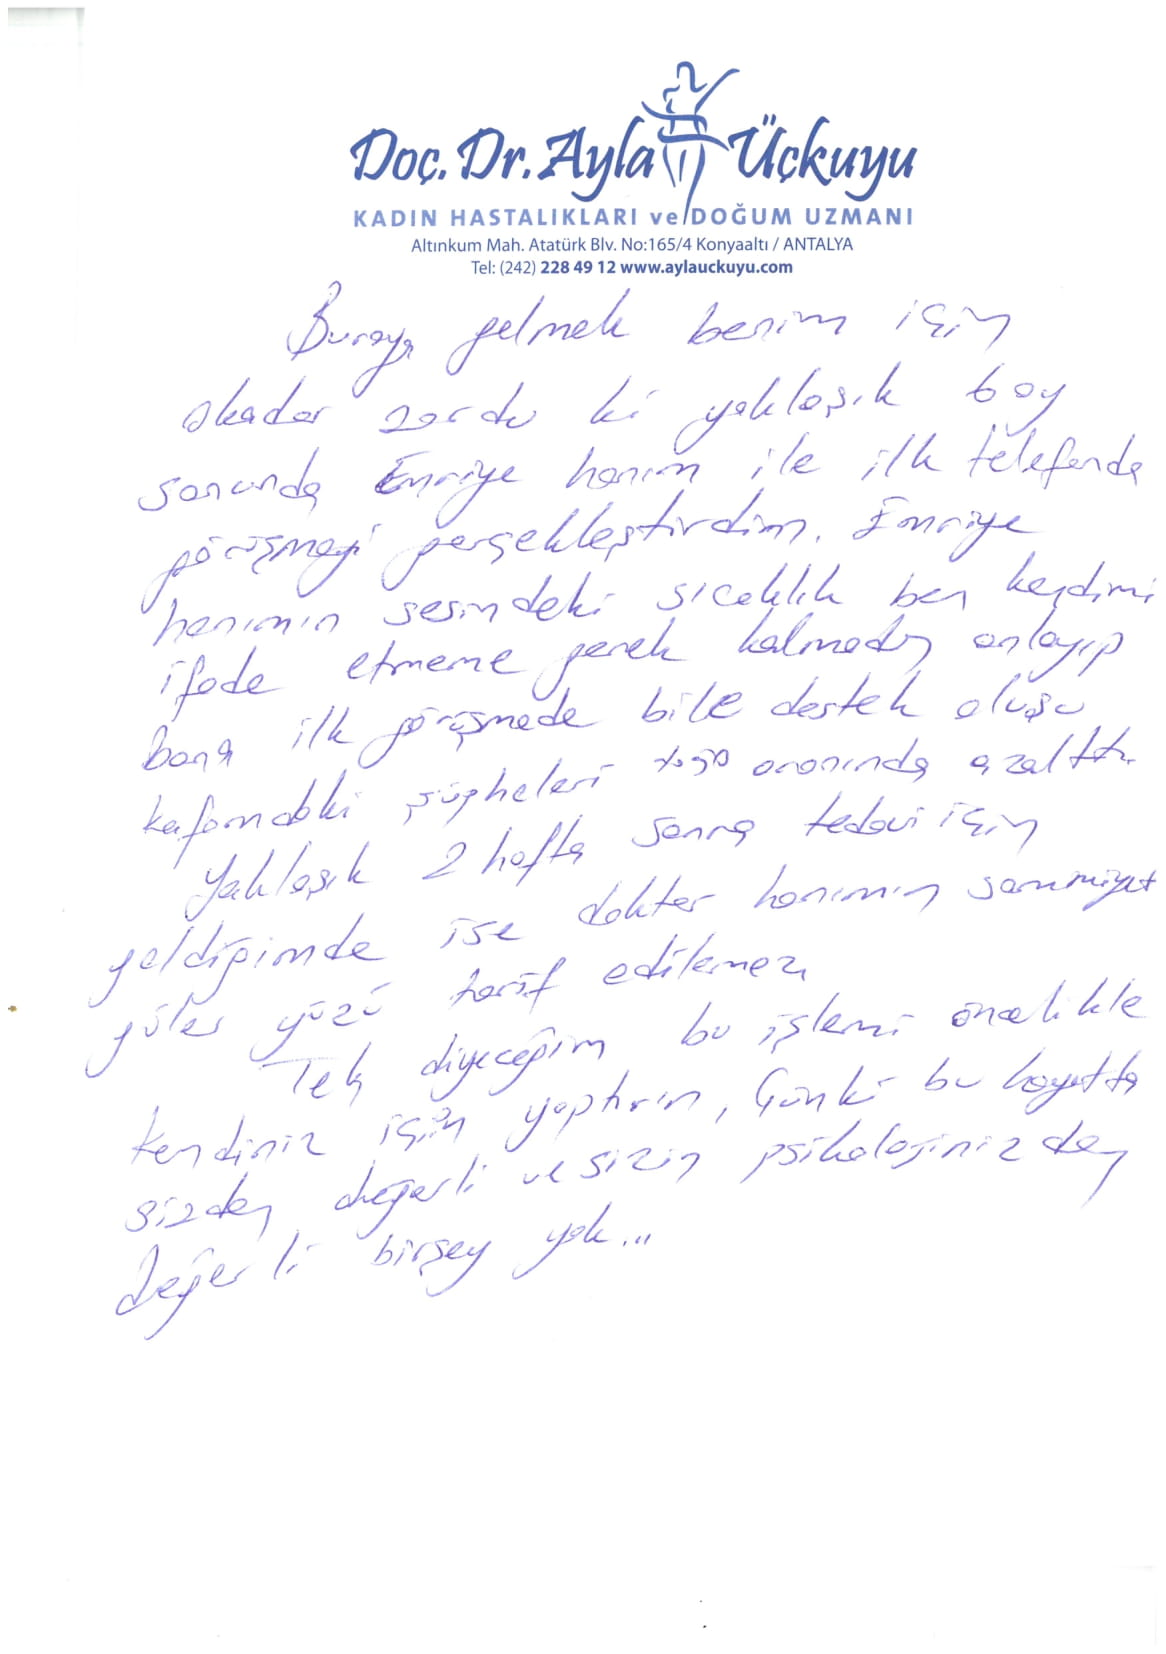 Doç. Dr. Ayla Üçkuyu
KADIN HASTALIKLARI ve DOĞUM UZMANI
Altınkum Mah. Atatürk Blv. No:165/4 Konyaaltı / ANTALYA
Tel: (242) 228 49 12 www.aylauckuyu.com
Buraya gelmek benim için
okadar zordu ki yaklaşık 6 ay
sonunda Emriye hanım ile ilk telefonda
görüşmeyi gerçekleştirdim. Emriye
hanımın sesindeki sıcaklık ben kendimi
ifade etmeme gerek kalmadan anlayıp
bana ilk görüşmede bile destek oluşu
kafamdaki şüpheleri %90 oranında azalttı.
Yaklaşık 2 hafta sonra tedavi için
geldiğimde ise doktor hanımın samimiyet
güler yüzü tarif edilemez.
Tek diyeceğim bu işlemi öncelikle
kendiniz için yaptırın, Çünkü bu hayatta
sizden değerli ve sizin psikolojinizden
değerli birşey yok...